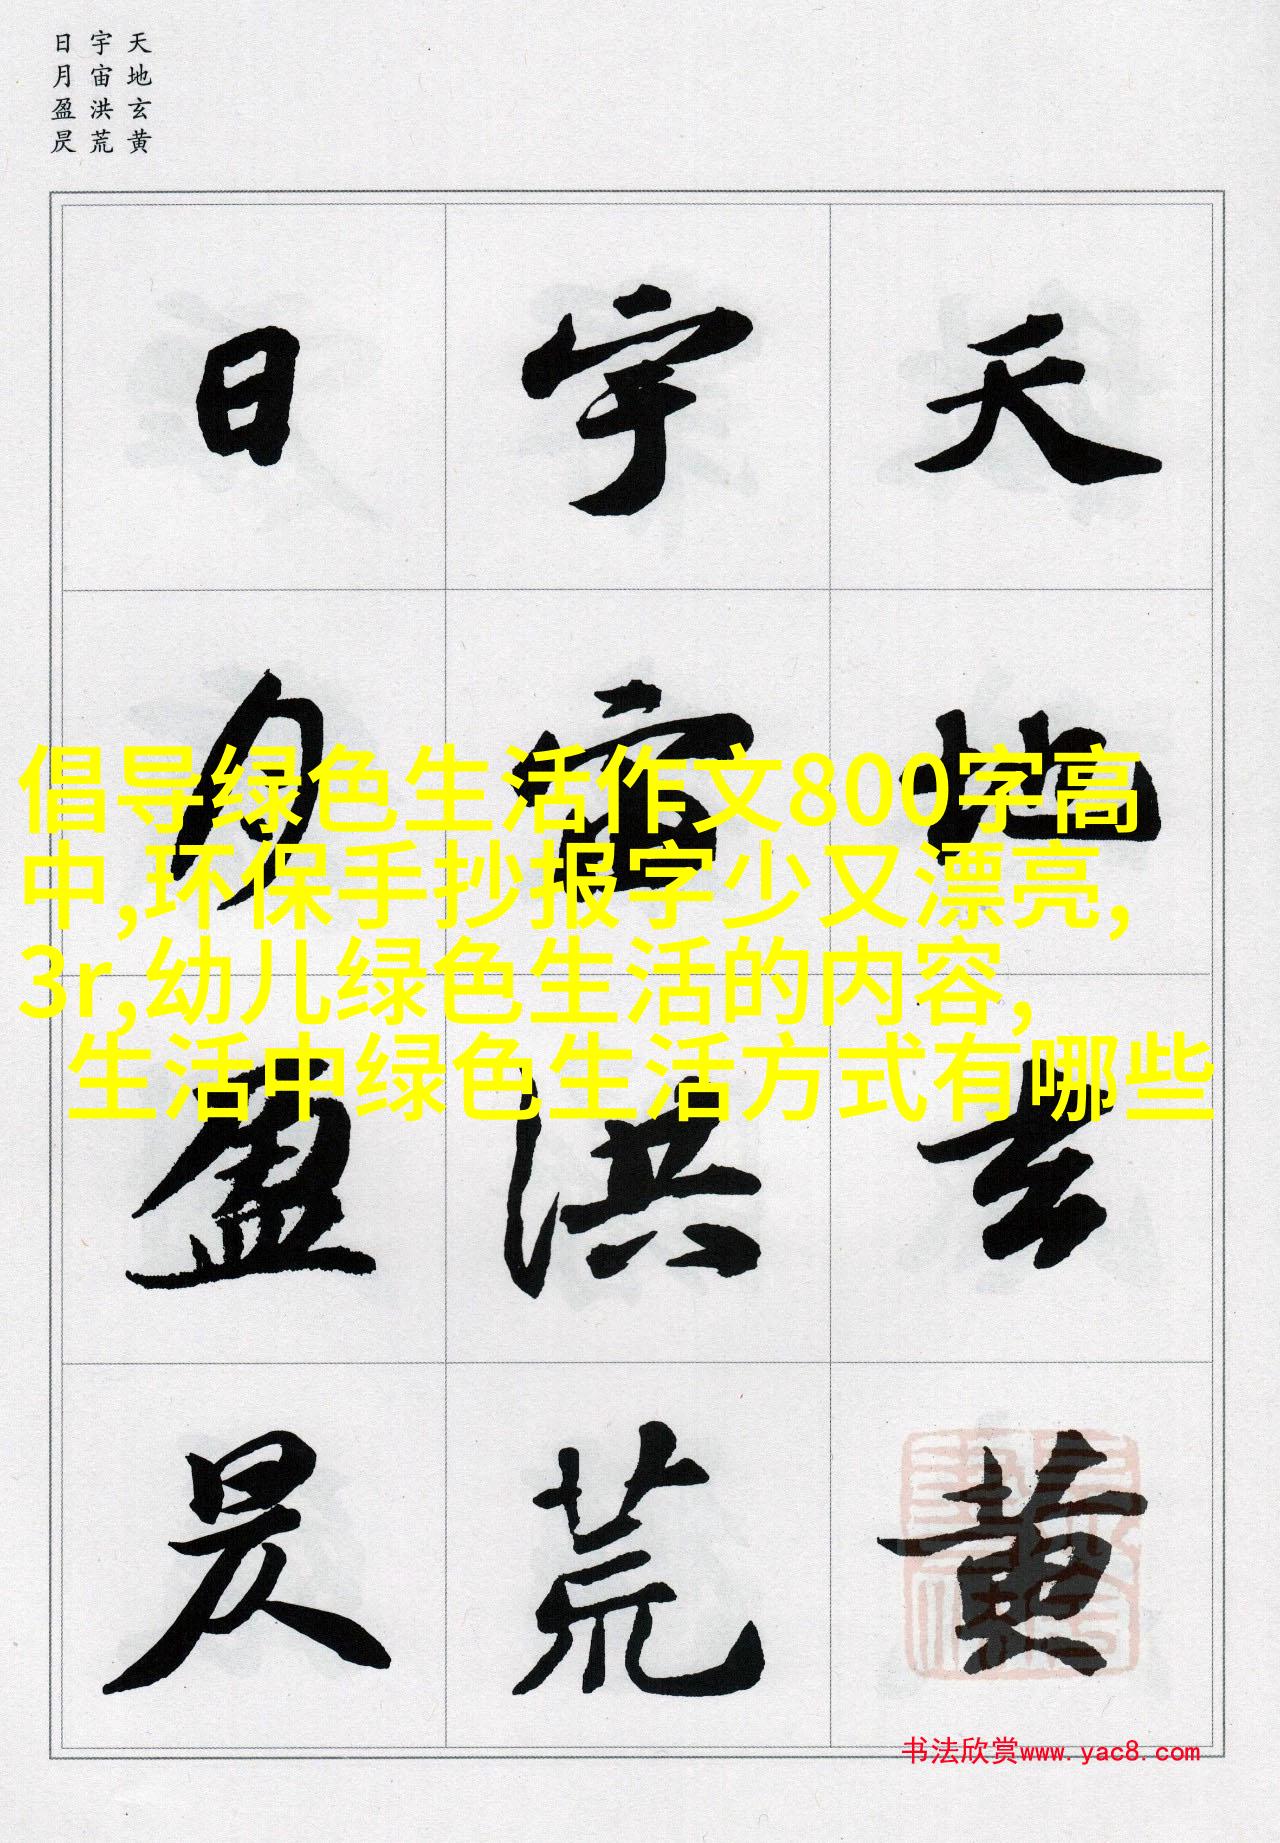 天地玄黄
宇宙洪荒
日月盈昃
天地玄黄
宇宙洪荒
日月盈昃
倡导绿色生活作文800字高
中,环保手抄报字少又漂亮,
3r,幼儿绿色生活的内容,
生活中绿色生活方式有哪些
书法欣赏www.yac8.com